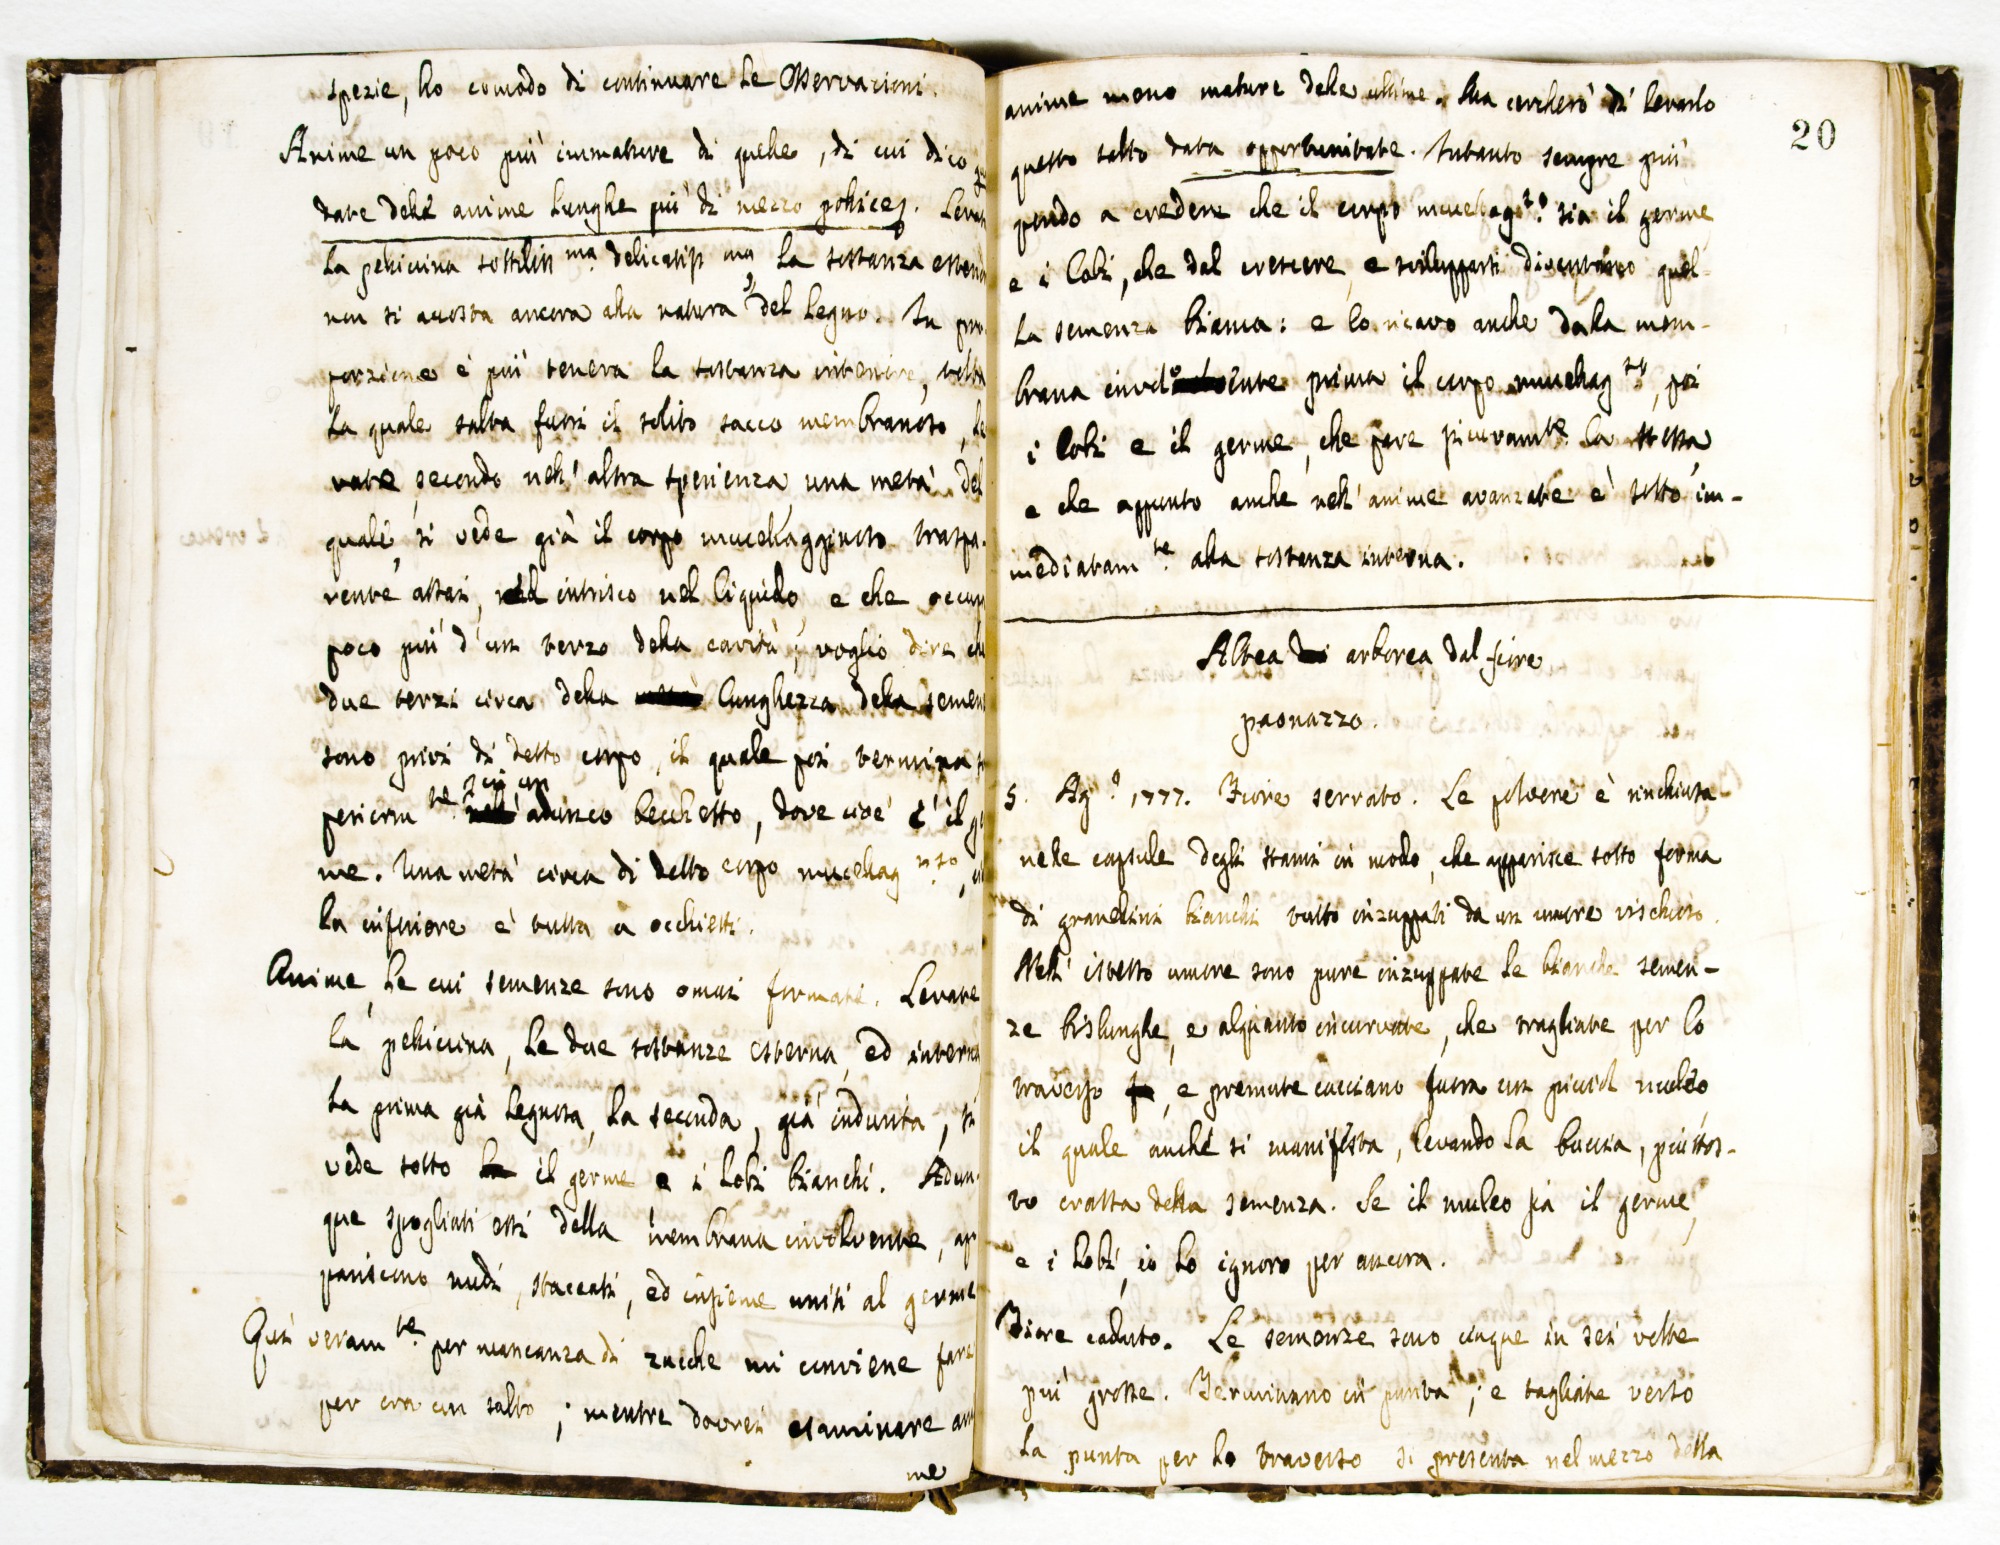 spezie, ho comodo di continuare le Osservazioni.
Anime un poco più immature di quelle, di cui dico
date delle anime lunghe più di mezzo pollice.
la pellicina sottiliss.ma delicatiss.ma, la sostanza
non si accosta ancora alla natura del legno. In pro-
porzione è più tenera la sostanza interiore,
la quale salta fuori il solito sacco membranoso, le
vate secondo nell'altra sperienza una metà del
quale, si vede già il corpo mucellagginoso traspa-
rente assai, intrisco nel liquido, e che occup
poco più d'un terzo della cavità; voglio dire ch
due terzi circa della lunghezza della semen
sono privi di detto corpo, il quale poi termina
in un
adunco becchetto, dove cioè è il ger
me. Una metà circa di detto corpo mucellag.nso,
la inferiore è tutta a occhietti.
Anime, le cui semenze sono omai formate. Levate
la pellicina, le due sostanze esterna, ed interna
la prima già legnosa, la seconda, già indurita, si
vede sotto il germe e i lobi bianchi. Adun-
que spogliati essi della membrana involvente, ap
pariscono nudi, staccati, ed insieme uniti al germe
Qui veram.te per mancanza di zucche mi conviene fare
per ora un salto; mentre dovrei esaminare ani
me
20
anime meno mature delle ultime. Ma cercherò di levarlo
questo salto data opportunitate. Intanto sempre più
pendo a credere che il corpo mucellag.so sia il germe
e i lobi, che dal crescere, e svilupparsi diventino quel-
la semenza bianca: e lo ricavo anche dalla mem-
brana involvente prima il corpo mucellag.so, poi
i lobi e il germe, che pare sicuram.te la stessa
e che appunto anche nell'anime avanzate è sotto im-
mediatam.te alla sostanza interna.
Altea arborea dal fiore
paonazzo.
5. Ag.o 1777. Fiore serrato. Le polvere è rinchiusa
nelle capsule degli stami in modo, che apparisce sotto forma
di granellini bianchi tutto inzuppati da un umore vischioso.
Nell'istesso umore sono pure inzuppate le bianche semen-
ze bislunghe, e alquanto incurvate, che tragliate per lo
traverso, e premute cacciano fuora un picciol nucleo
il quale anche si manifesta, levando la buccia, piuttos-
to crassa della semenza. Se il nucleo sia il germe,
e i lobi, io lo ignoro per ancora.
Fiore caduto. Le semenze sono cinque in sei volte
più grosse. Terminano in punta; e tagliate verso
la punta per lo traverso si presenta nel mezzo della